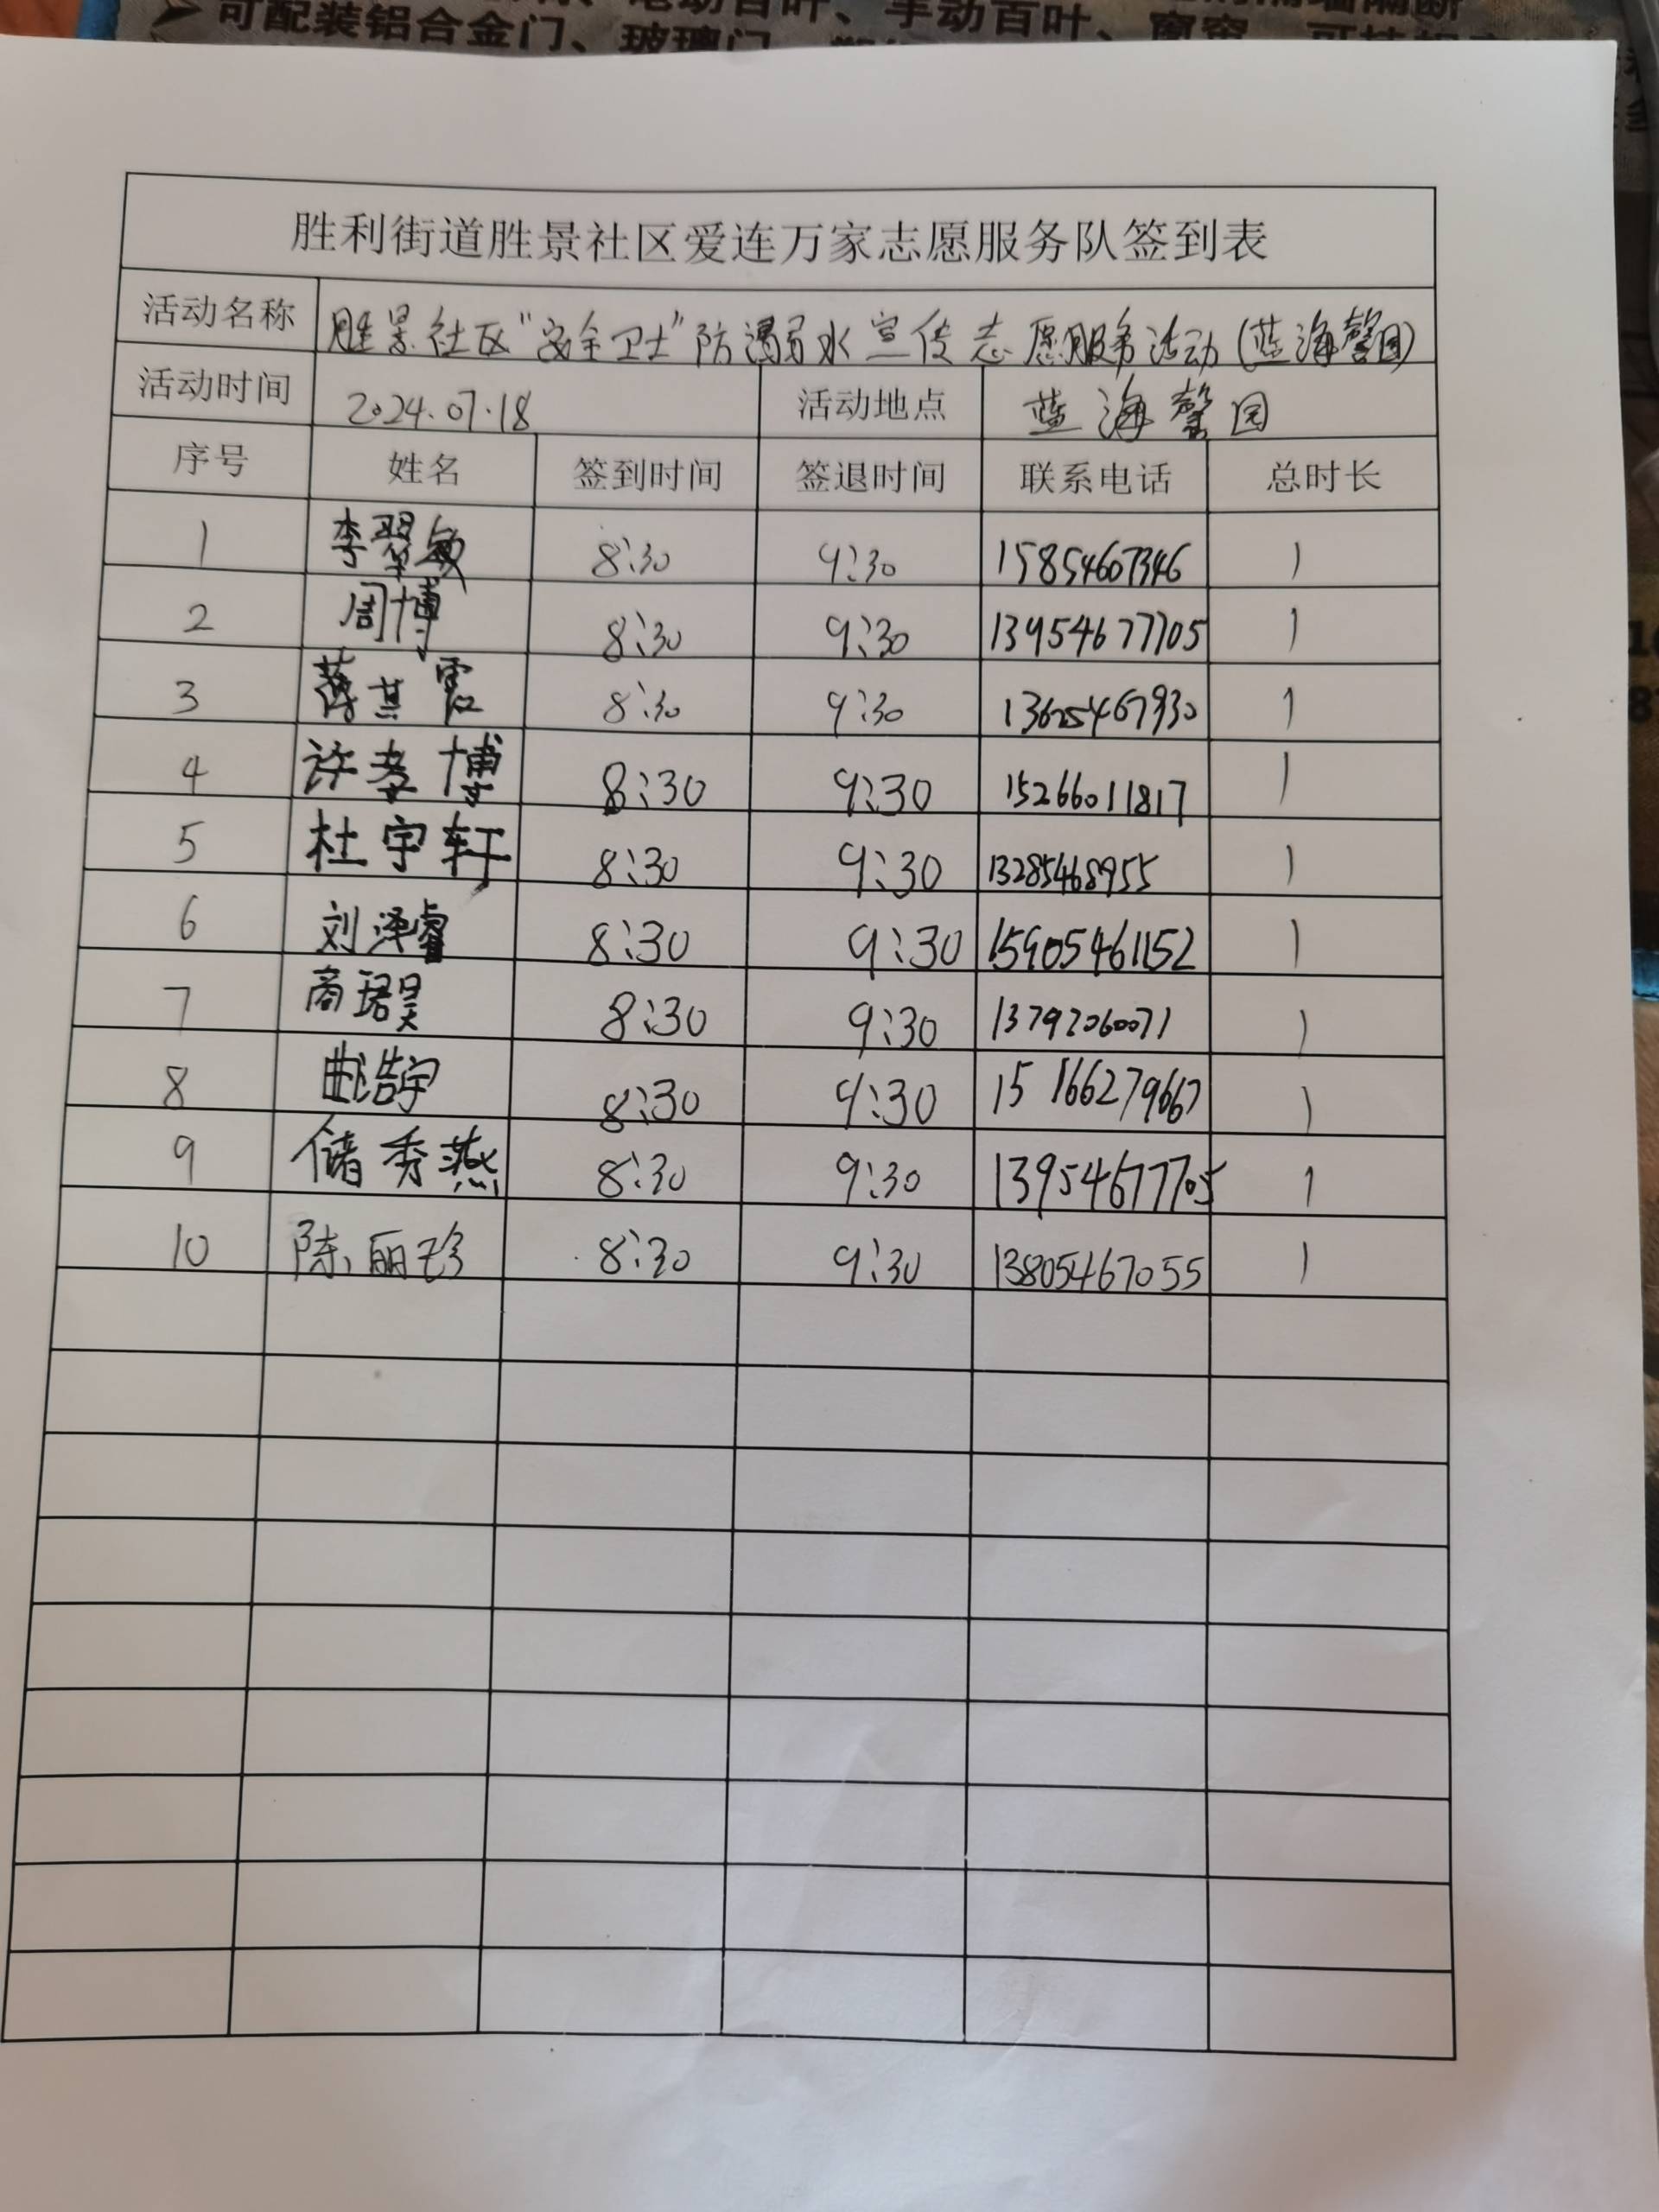 可配装铝合金门、玻璃门
手动百叶、窗帘
胜利街道胜景社区爱连万家志愿服务队签到表
活动名称 胜景社区"安全卫士"防溺水宣传志愿服务活动(蓝海馨园)
活动时间 2024.07.18 活动地点 蓝海馨园
序号 姓名 签到时间 签退时间 联系电话 总时长
1 李翠敏 8:30 9:30 15854607346 1
2 周博 8:30 9:30 13954677705 1
3 薄其霞 8:30 9:30 13605467930 1
4 许孝博 8:30 9:30 15266011817 1
5 杜宇轩 8:30 9:30 13285468955 1
6 刘泽睿 8:30 9:30 15905461152 1
7 商珺昊 8:30 9:30 13792060071 1
8 浩宇 8:30 9:30 15166279667 1
9 储秀燕 8:30 9:30 13954677705 1
10 陈丽珍 8:30 9:30 13805467055 1